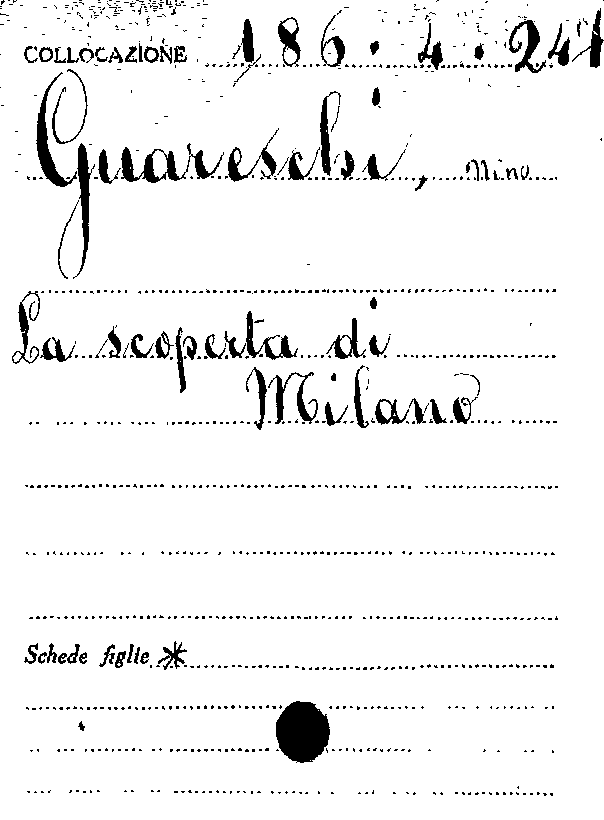 COLLOCAZIONE 186.4.241
Guareschi, Nino
La scoperta di
Milano
Schede figlie *